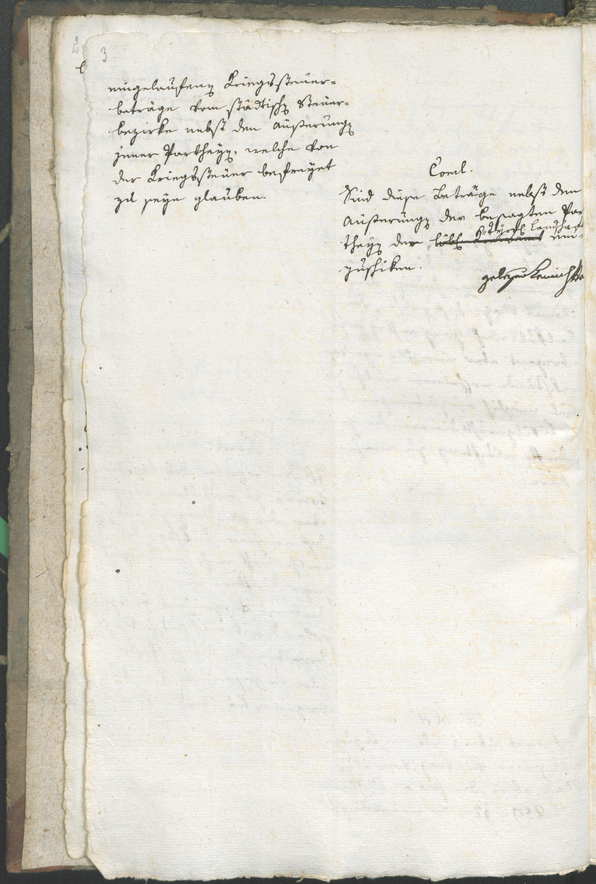 3
eingelaufenen Kriegssteuer-
beträge vom städtischen Steuer-
bezirke nebst den Äußerungen
jener Partheyen, welche von
der Kriegssteuer befreyet
zu seyn glauben.
Concl.
Sind diese Beträge nebst den
Äußerungen der besagten Par
theyen der löbl. Landschaft ein-
zuschiken.